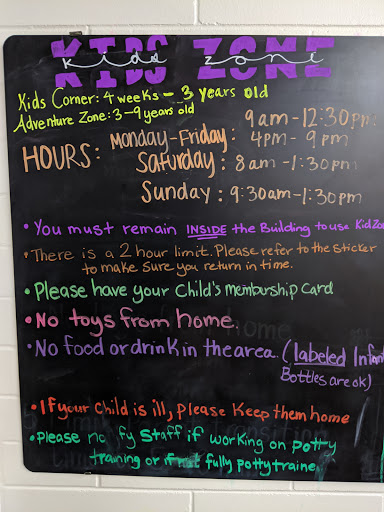 KIDS ZONE
kids zone
Kids Corner: 4 weeks - 3 years old
Adventure Zone: 3-9 years old
HOURS: Monday-Friday: 9am-12:30pm
4pm - 9pm
Saturday: 8am -1:30pm
Sunday: 9:30am-1:30pm
• You must remain INSIDE the Building to use KidZo
• There is a 2 hour limit. Please refer to the sticker
to make sure you return in time.
• Please have your Child's membership card
• No toys from home.
• No food or drink in the area. (labeled Infant
Bottles are ok)
• If your child is ill, please keep them home
• Please no fy Staff if working on potty
training or if not fully potty traine